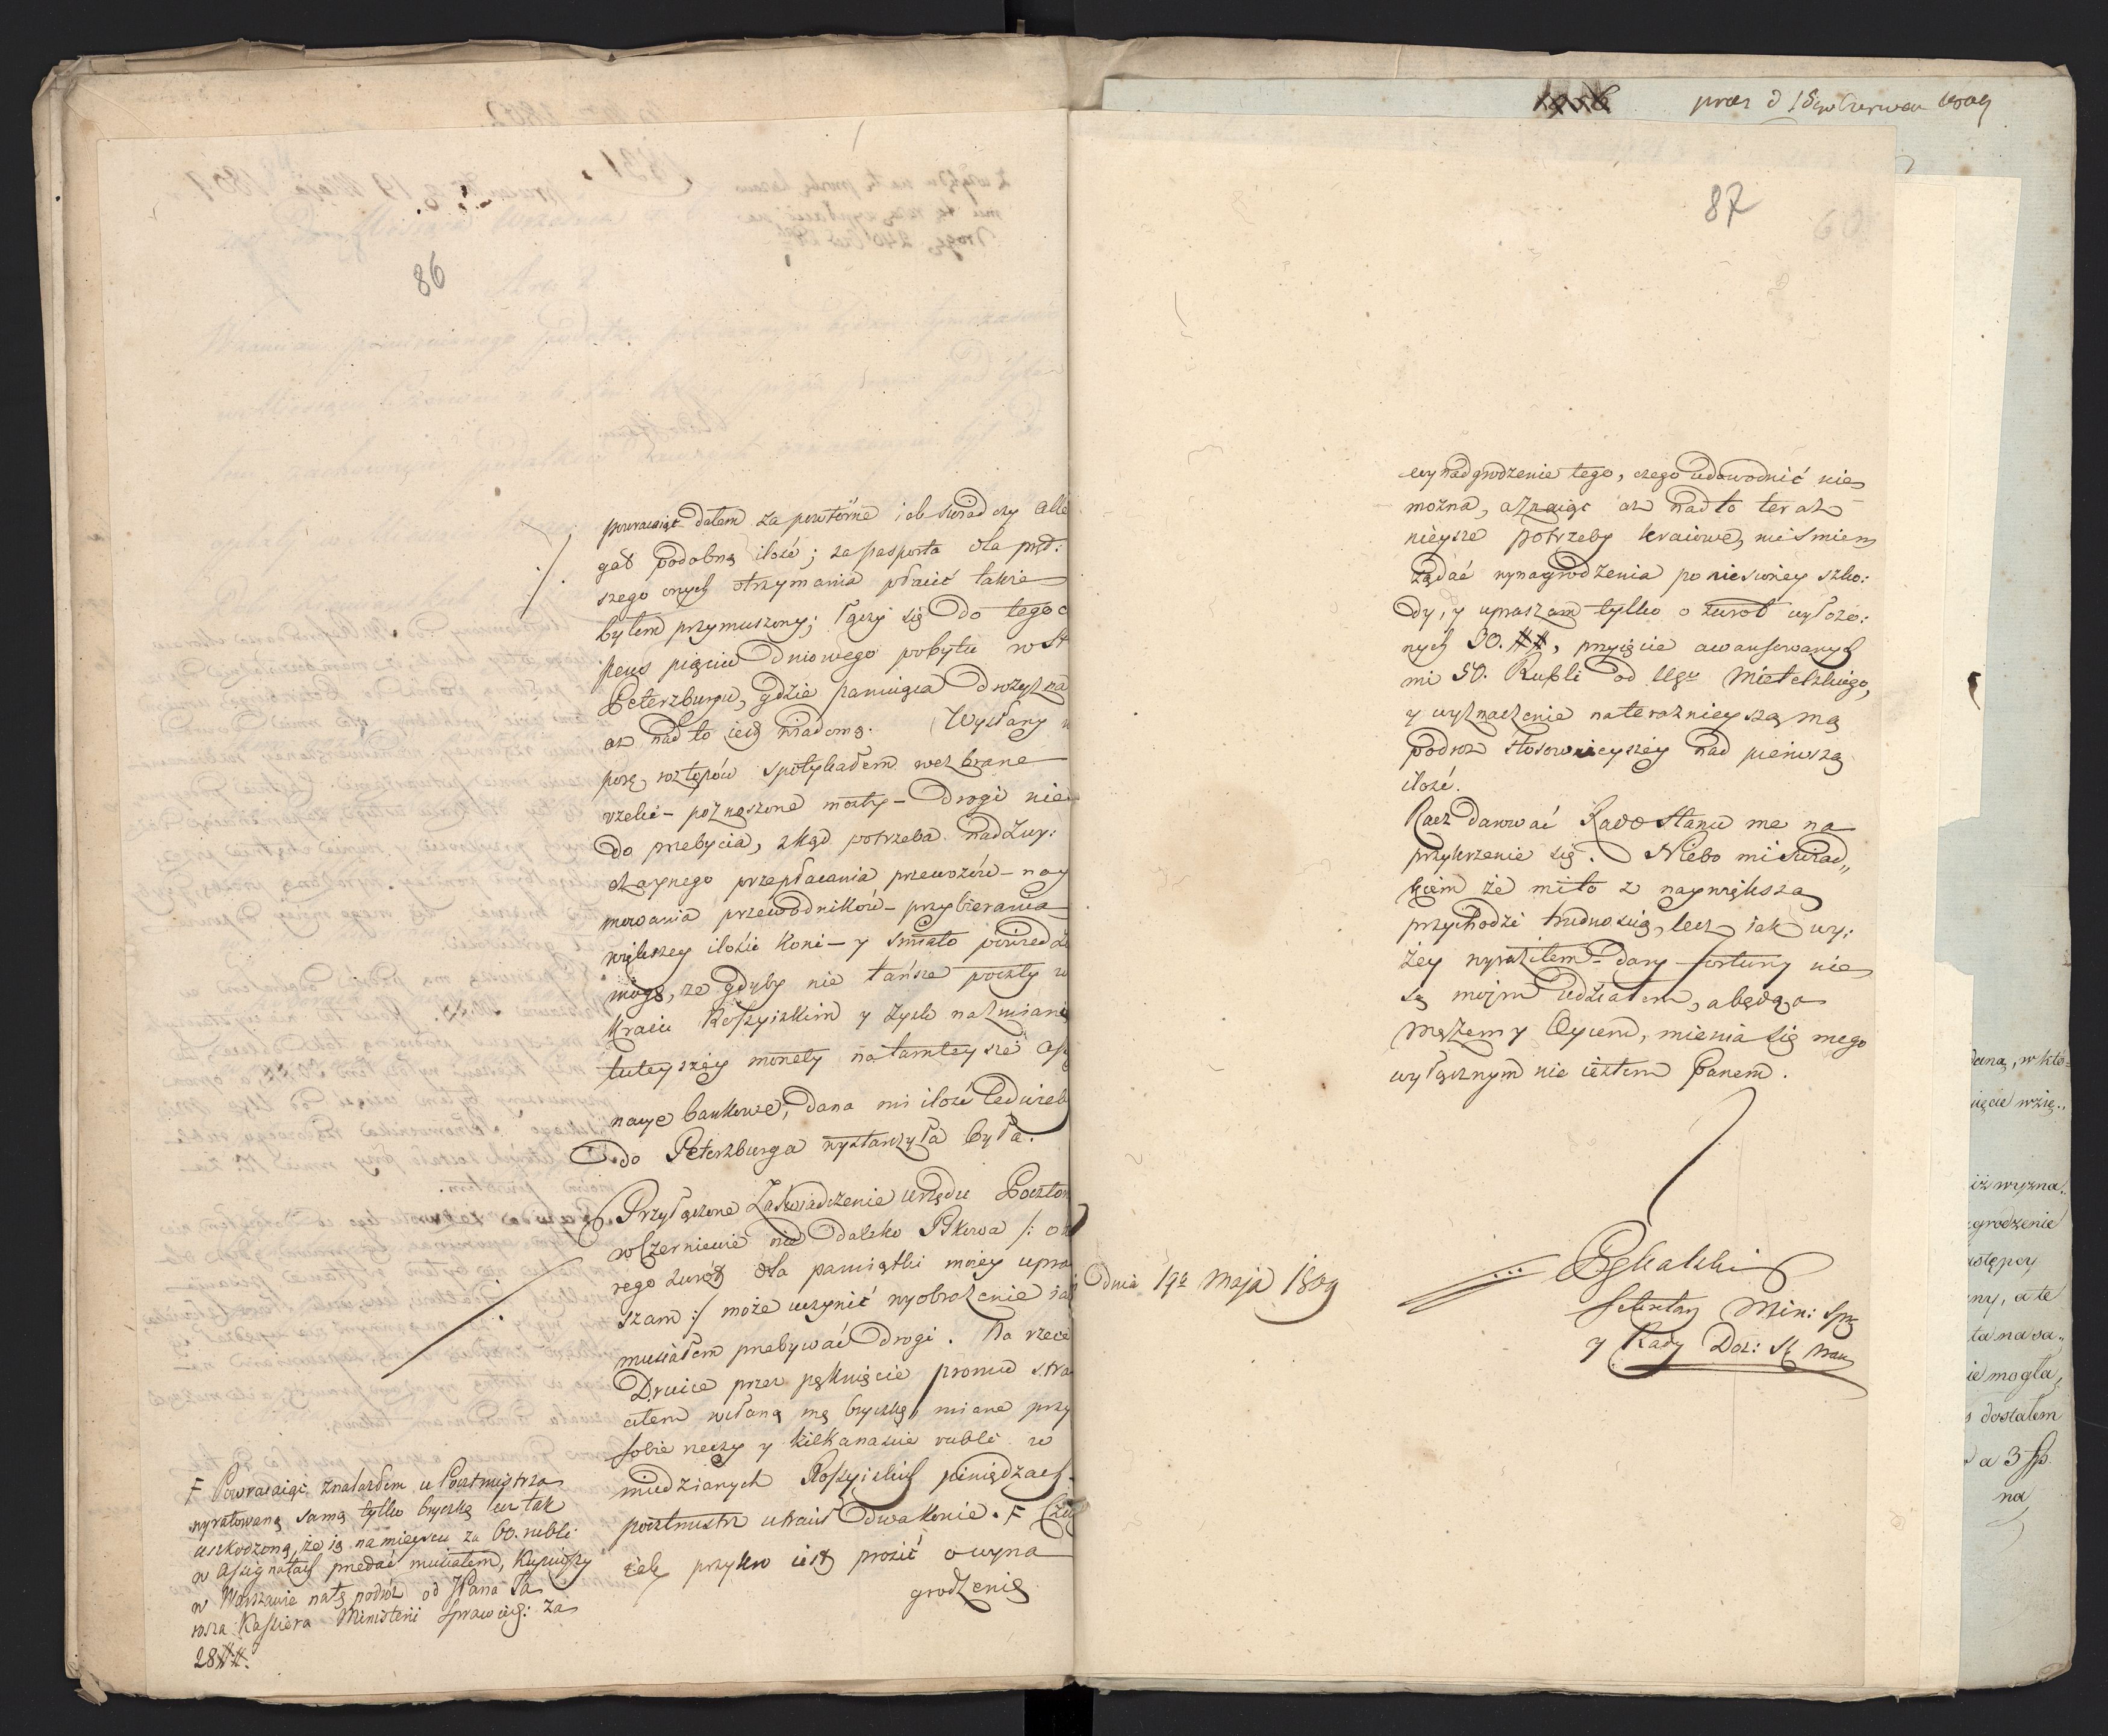 86
powracaiąc dałem za powtórne i ob świadczy Alle
gat podobną ilość; za pasporta dla pręd:
szego onych otrzymania płacić także
byłem przymuszony; łączy się do tego
pięciu dniowego pobytu w St
Peterzburgu, gdzie panuiąca drożyzna
aż nad to iest wiadomą. Wysłany w
porę roztopów spotykałem wezbrane
rzeki – poznoszone mosty – drogi nie
do przebycia, zkąd potrzeba nadzwy:
czaynego przepłacania przewozów – nay
mowania przewodników – przybierania
większey ilości koni – y śmiało powiedzi
mogę, że gdyby nie tańsze poczty w
Kraiu Rossyiskim y zysk na zmianie
tuteyszéy monety na tamteysze Assy
nacye bankowe, dana mi ilość ledwieb
do Peterzburga wystarczyła była.
Przyłączone Zaświadczenie urzędu Poczto
w Czerniewie nie daleko Pskowa /: o kt
rego zwrot dla pamiątki moiey upra
szam :/ może uczynić wyobrażenie iak
musiałem przebywać drogi. Na rzece
Druice przez pęknięcie promu stra
ciłem własną mą bryczkę, miane przy
sobie rzeczy y kilkanaście rubli w
miedzianych Rossyiskich pieniądzach
pocztmistrz utracił dwa konie. F Czu
przykro iest prosić o wyna
grodzenie
F Powracaiąc znalazłem u Pocztmistrza
wyratowaną samą tylko bryczkę lecz tak
uszkodzoną, że ią na mieyscu za 60. rubli
w Assignatach przedać musiałem, kupiwszy
w Warszawie na tę podróż od JPana Pa
wsza Kassiera Ministerii Sprawied: za
28 ##.
prez d 18go Czerwca 1809
87
60
wynadgrodzenie tego, czego udowodnić nie
można, a znaiąc aż nad to teraz
nieysze potrzeby kraiowe, nie śmiem
żądać wynagrodzenia poniesioney szko:
dy, y upraszam tylko o zwrot wyłożo:
nych 30. ##, przyięcie awansowanych
mi 50. Rubli od Ugu Mietelskiego,
y wyznaczenie na teraznieyszą mą
podroż stosownieyszéy nad pierwszą
ilość.
Racz darować Rado Stanu me na
przykrzenie się. Niebo mi świad„
kiem że mi to z naywiększą
przychodzi trudnością, lecz iak wy:
żéy wyraziłem – dary fortuny nie
są moim udziałem, a będąc
Mężem y Oycem, mienia się mego
wyłącznym nie iestem Panem.
Dnia 19o Maja 1809
Pękalski
Sekretarz Min: Spra
y Rady Doz: Sz Nau
daną, w któ-
ięcie wzię„
iż wyzna„
grodzenie
astępcy
ny, a te
ta na sa„
ie mogła,
dostałem
a 3
na